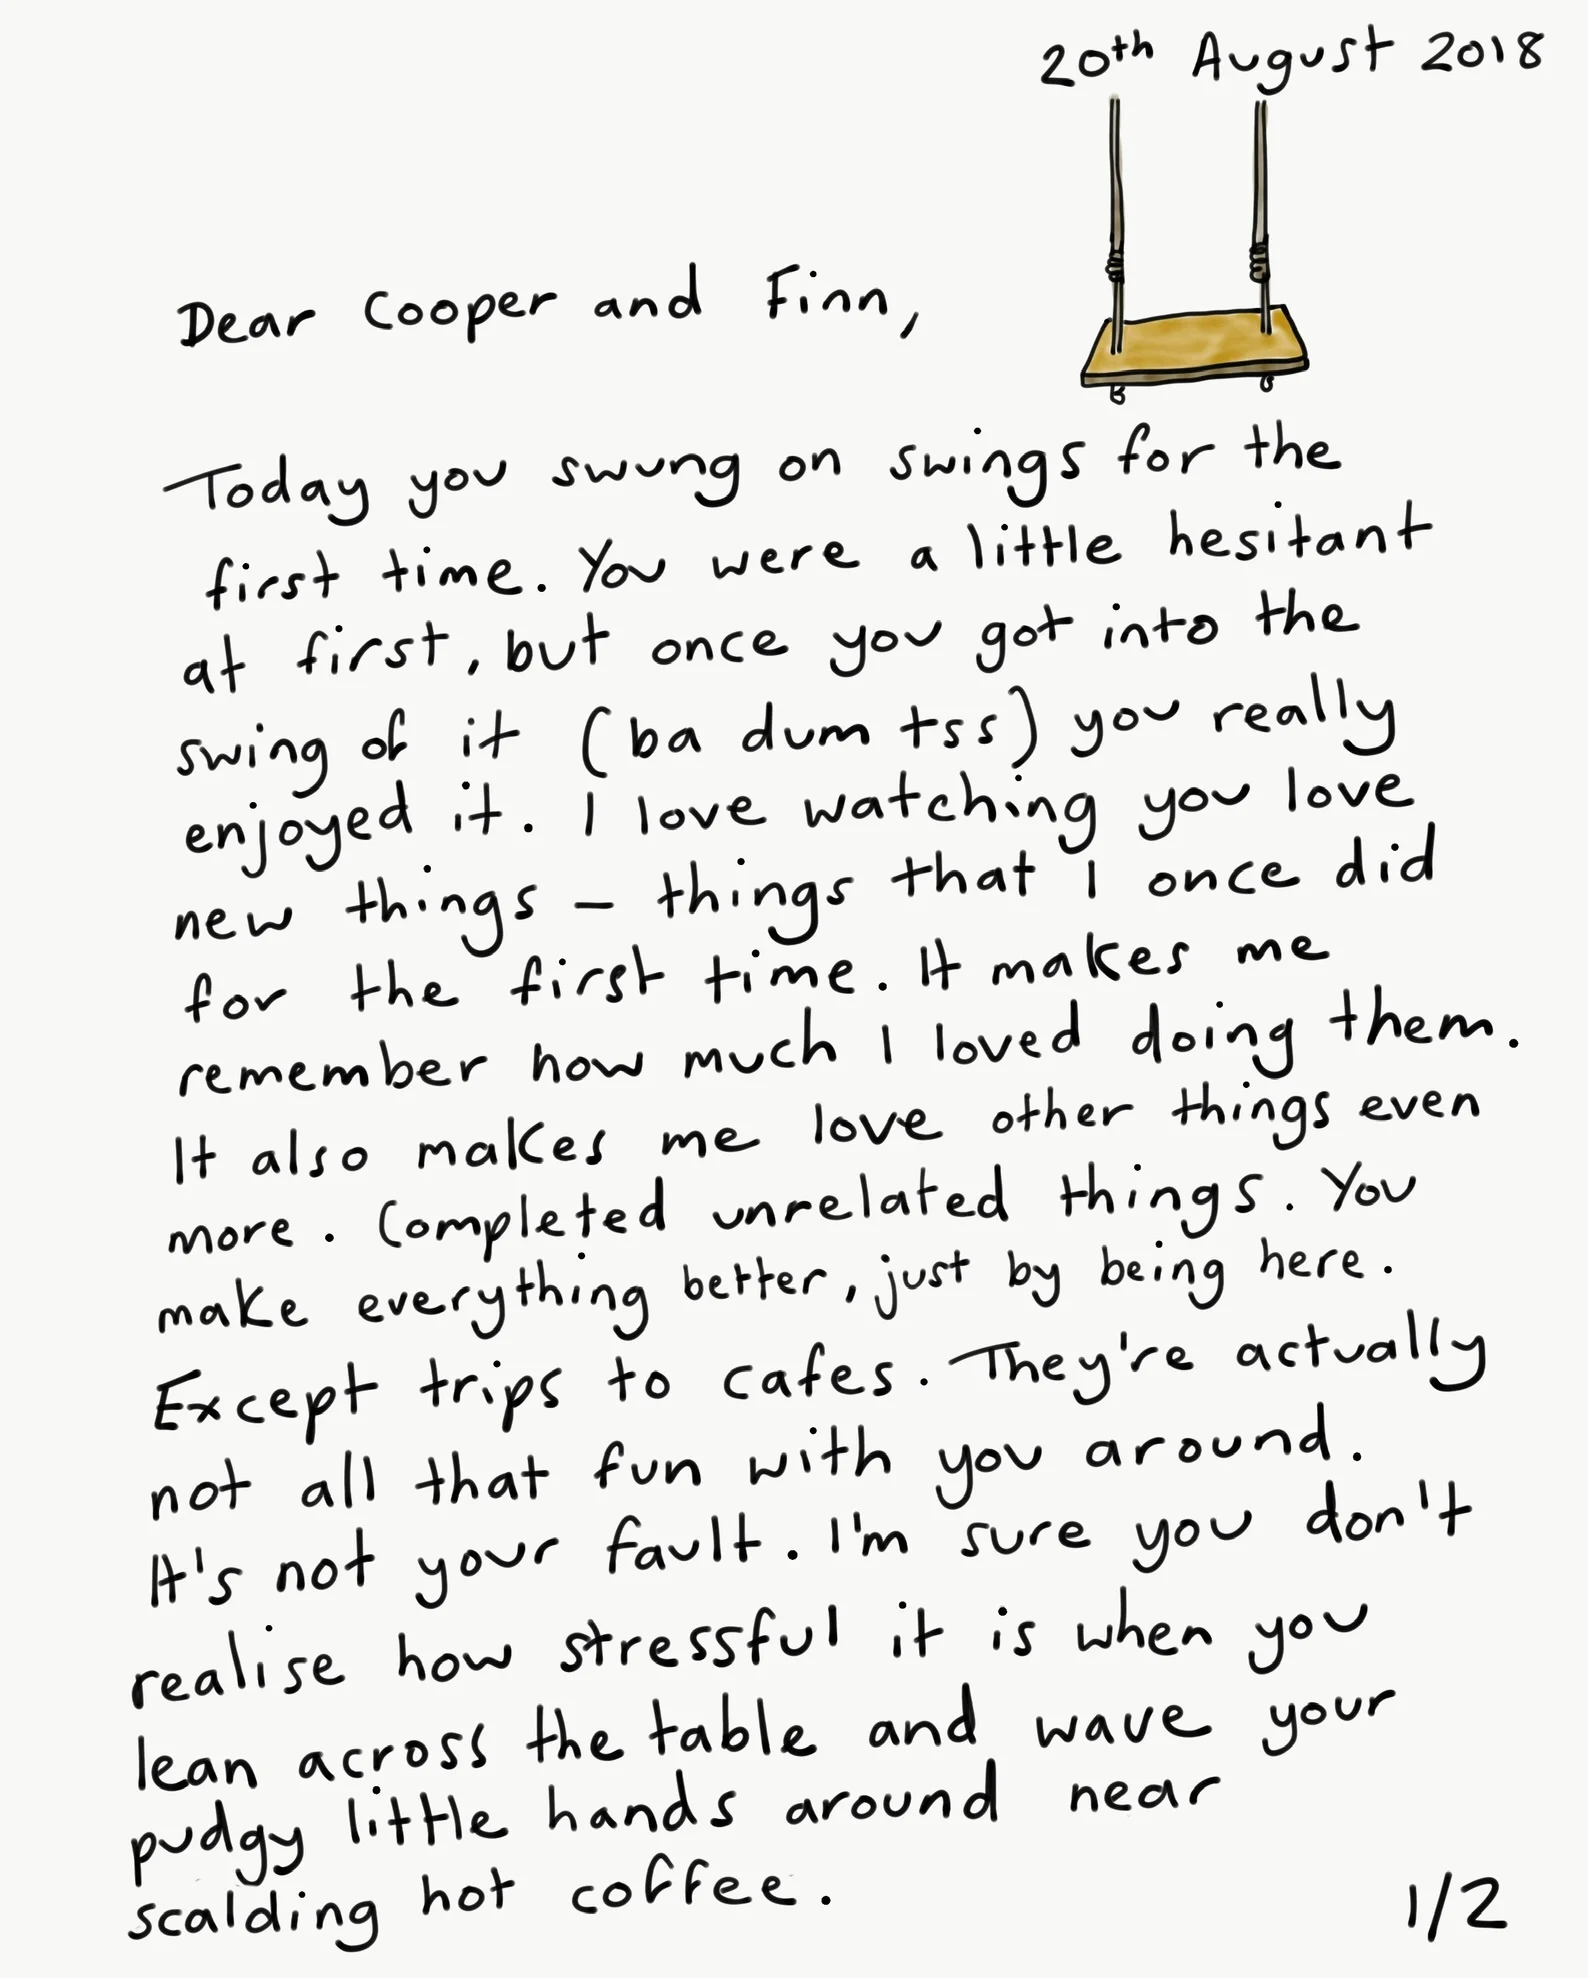 20th August 2018
Dear Cooper and Finn,
Today you swung on swings for the
first time. You were a little hesitant
at first, but once you got into the
swing of it (ba dum tss) you really
enjoyed it. I love watching you love
new things – things that I once did
for the first time. It makes me
remember how much I loved doing them.
It also makes me love other things even
more. Completed unrelated things. You
make everything better, just by being here.
Except trips to cafes. They're actually
not all that fun with you around.
It's not your fault. I'm sure you don't
realise how stressful it is when you
lean across the table and wave your
pudgy little hands around near
scalding hot coffee.
1/2